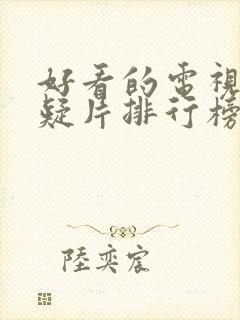 好看的電視
疑片排行榜
陸奕宸